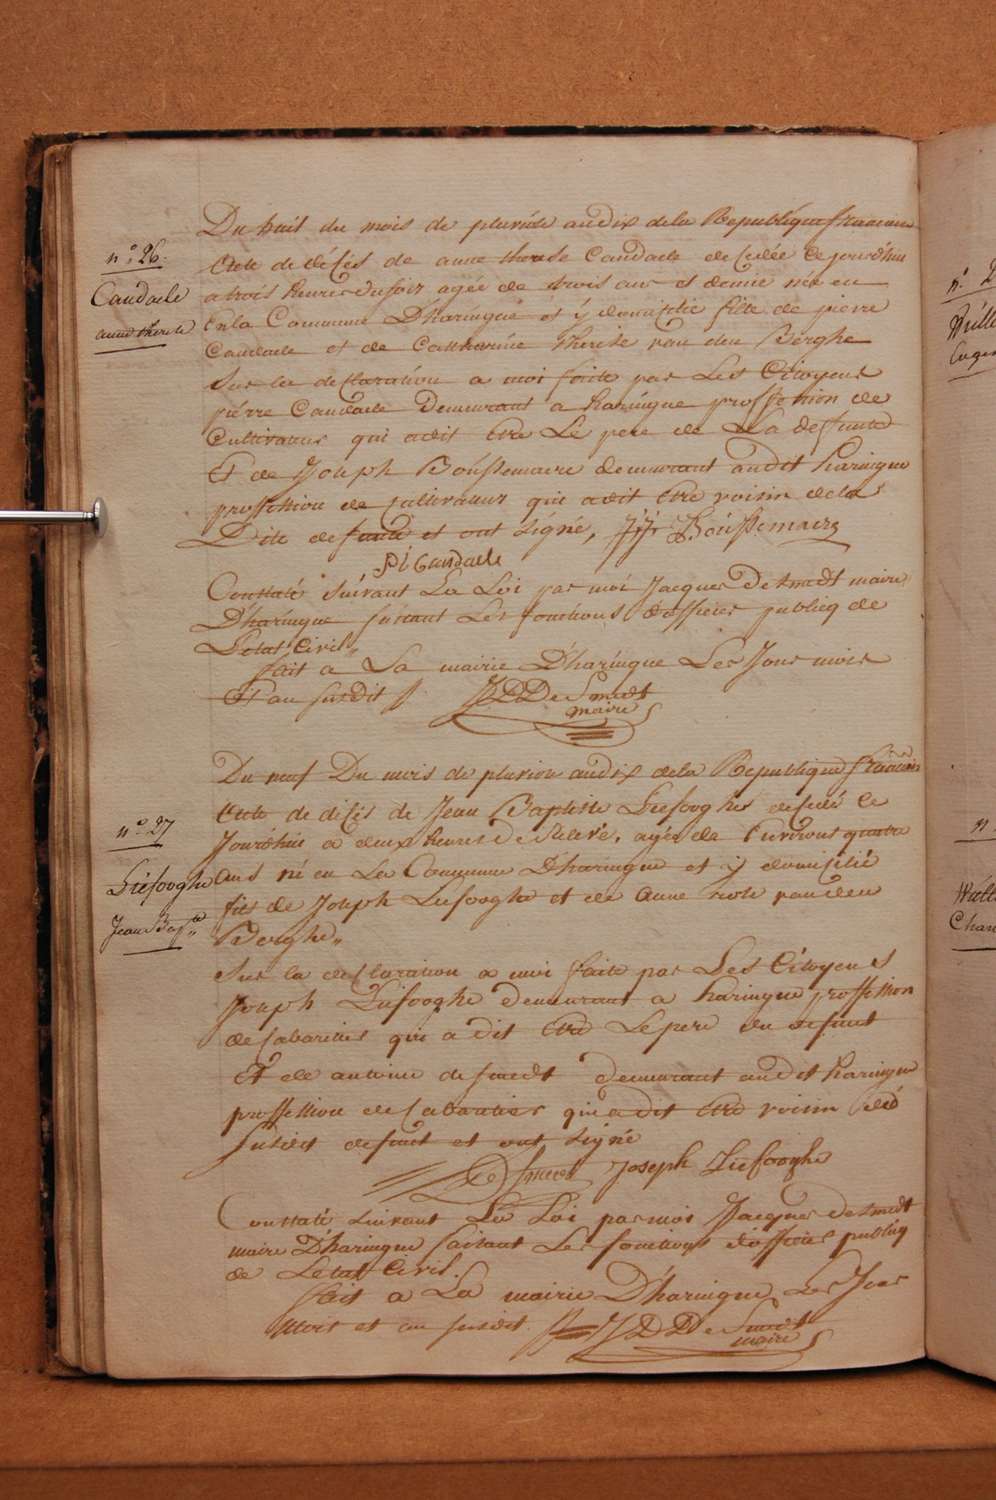 n.° 26.
Candaele
anne therese
Du huit du mois de pluviose an dix de la Republique francaise
Acte de décès de anne therese Candaele decedée Ce jourdhui
a trois heures du soir agée de trois ans et demie née en
En la Commune D'haringue et y domicilié fille de pierre
Candaele et de Catherine therese van den Berghe
Sur la declaration a moi faite par Les Citoyens
pierre Candaele Demeurant a haringue proffession de
Cultivateur qui adit être Le pere de La defunte
Et de Joseph Boussemaere demeurant audit haringue
proffession de cultivateur qui adit être voisin de la
Dite defunte et ont signé, J:j: Boússemaere
P: Candaele
Constaté Suivant La Loi par moi Jacques De smedt maire
D'haringue faisant Les fonctions d'officier publicq de
Letat Civil"
fait a La mairie D'haringue Les Jour mois
Et an susdit JDDe Smedt
maire
n.° 27
Liefooghe
Jean Bap.te
Du neuf Du mois de pluviose an dix de la Republique francaise
Acte de décès de Jean Baptiste Liefooghe decedé Ce
Jourdhui a deux heures De relevé, agée de Environs quatre
ans né en La Commune D'haringue et y domicilié
fils de Joseph Liefooghe et de Anne van den
Berghe"
Sur la declaration a moi faite par Les Citoyens
Joseph Liefooghe demeurant a haringue proffession
de Cabaretier qui a dit être Le pere du defunt
Et de antoine de smedt demeurant audit haringue
proffession de Cabaretier qui a dit être voisin
susdit defunt et ont signé
De Smedt Joseph Liefooghe
Constaté suivant La Loi par moi Jacques de smedt
maire D'haringue faisant Les fonctions d'officier publicq
de Letat Civil.
fait a La mairie D'haringue Les Jour
Mois et an susdit. JDDe Smedt
maire
n. 2
n.